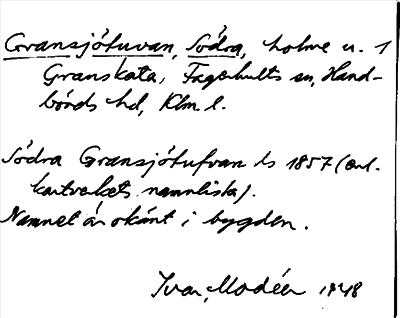 Gransjötuvan, Södra, holme u. 1
Granskata, Fagehults sn, Hand-
börds hd, Klm l.
Södra Gransjötufvan ls 1857 (enl.
kartverkets namnlista).
Namnet är okänt i bygden.
Ivar Modéer 1948